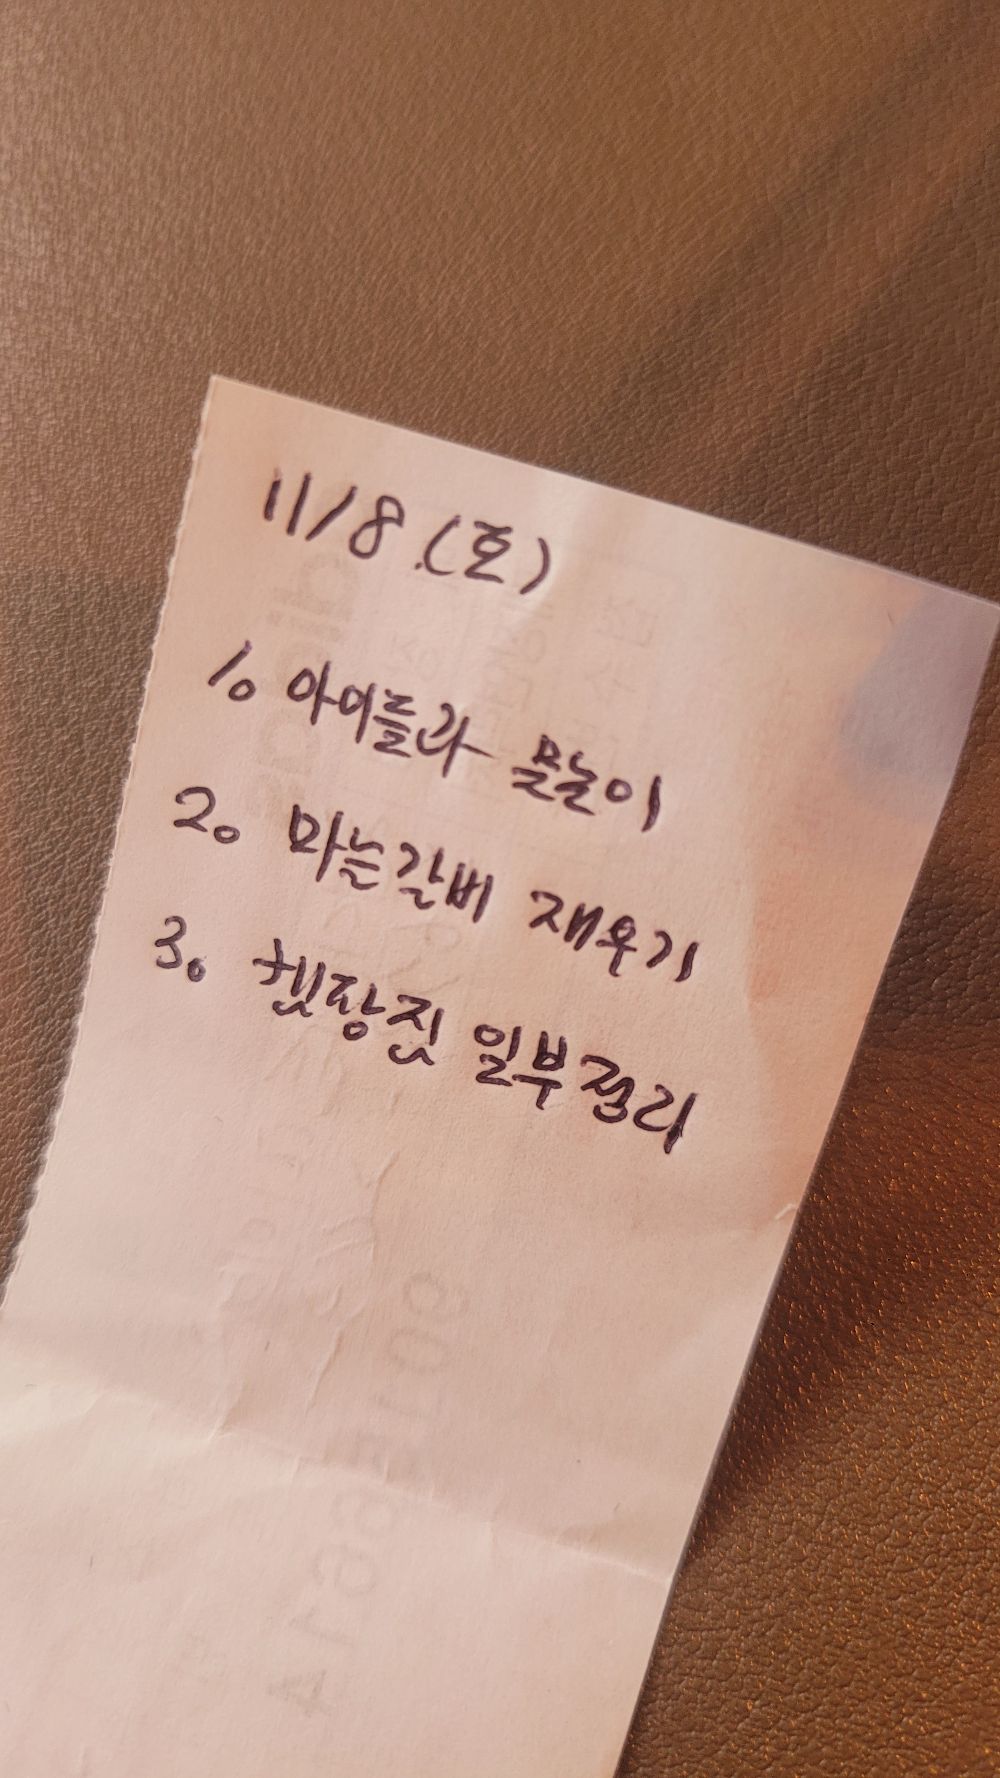 11/8 (토)
1. 아이들과 물놀이
2. 마늘갈비 재우기
3. 헛장짓 일부정리